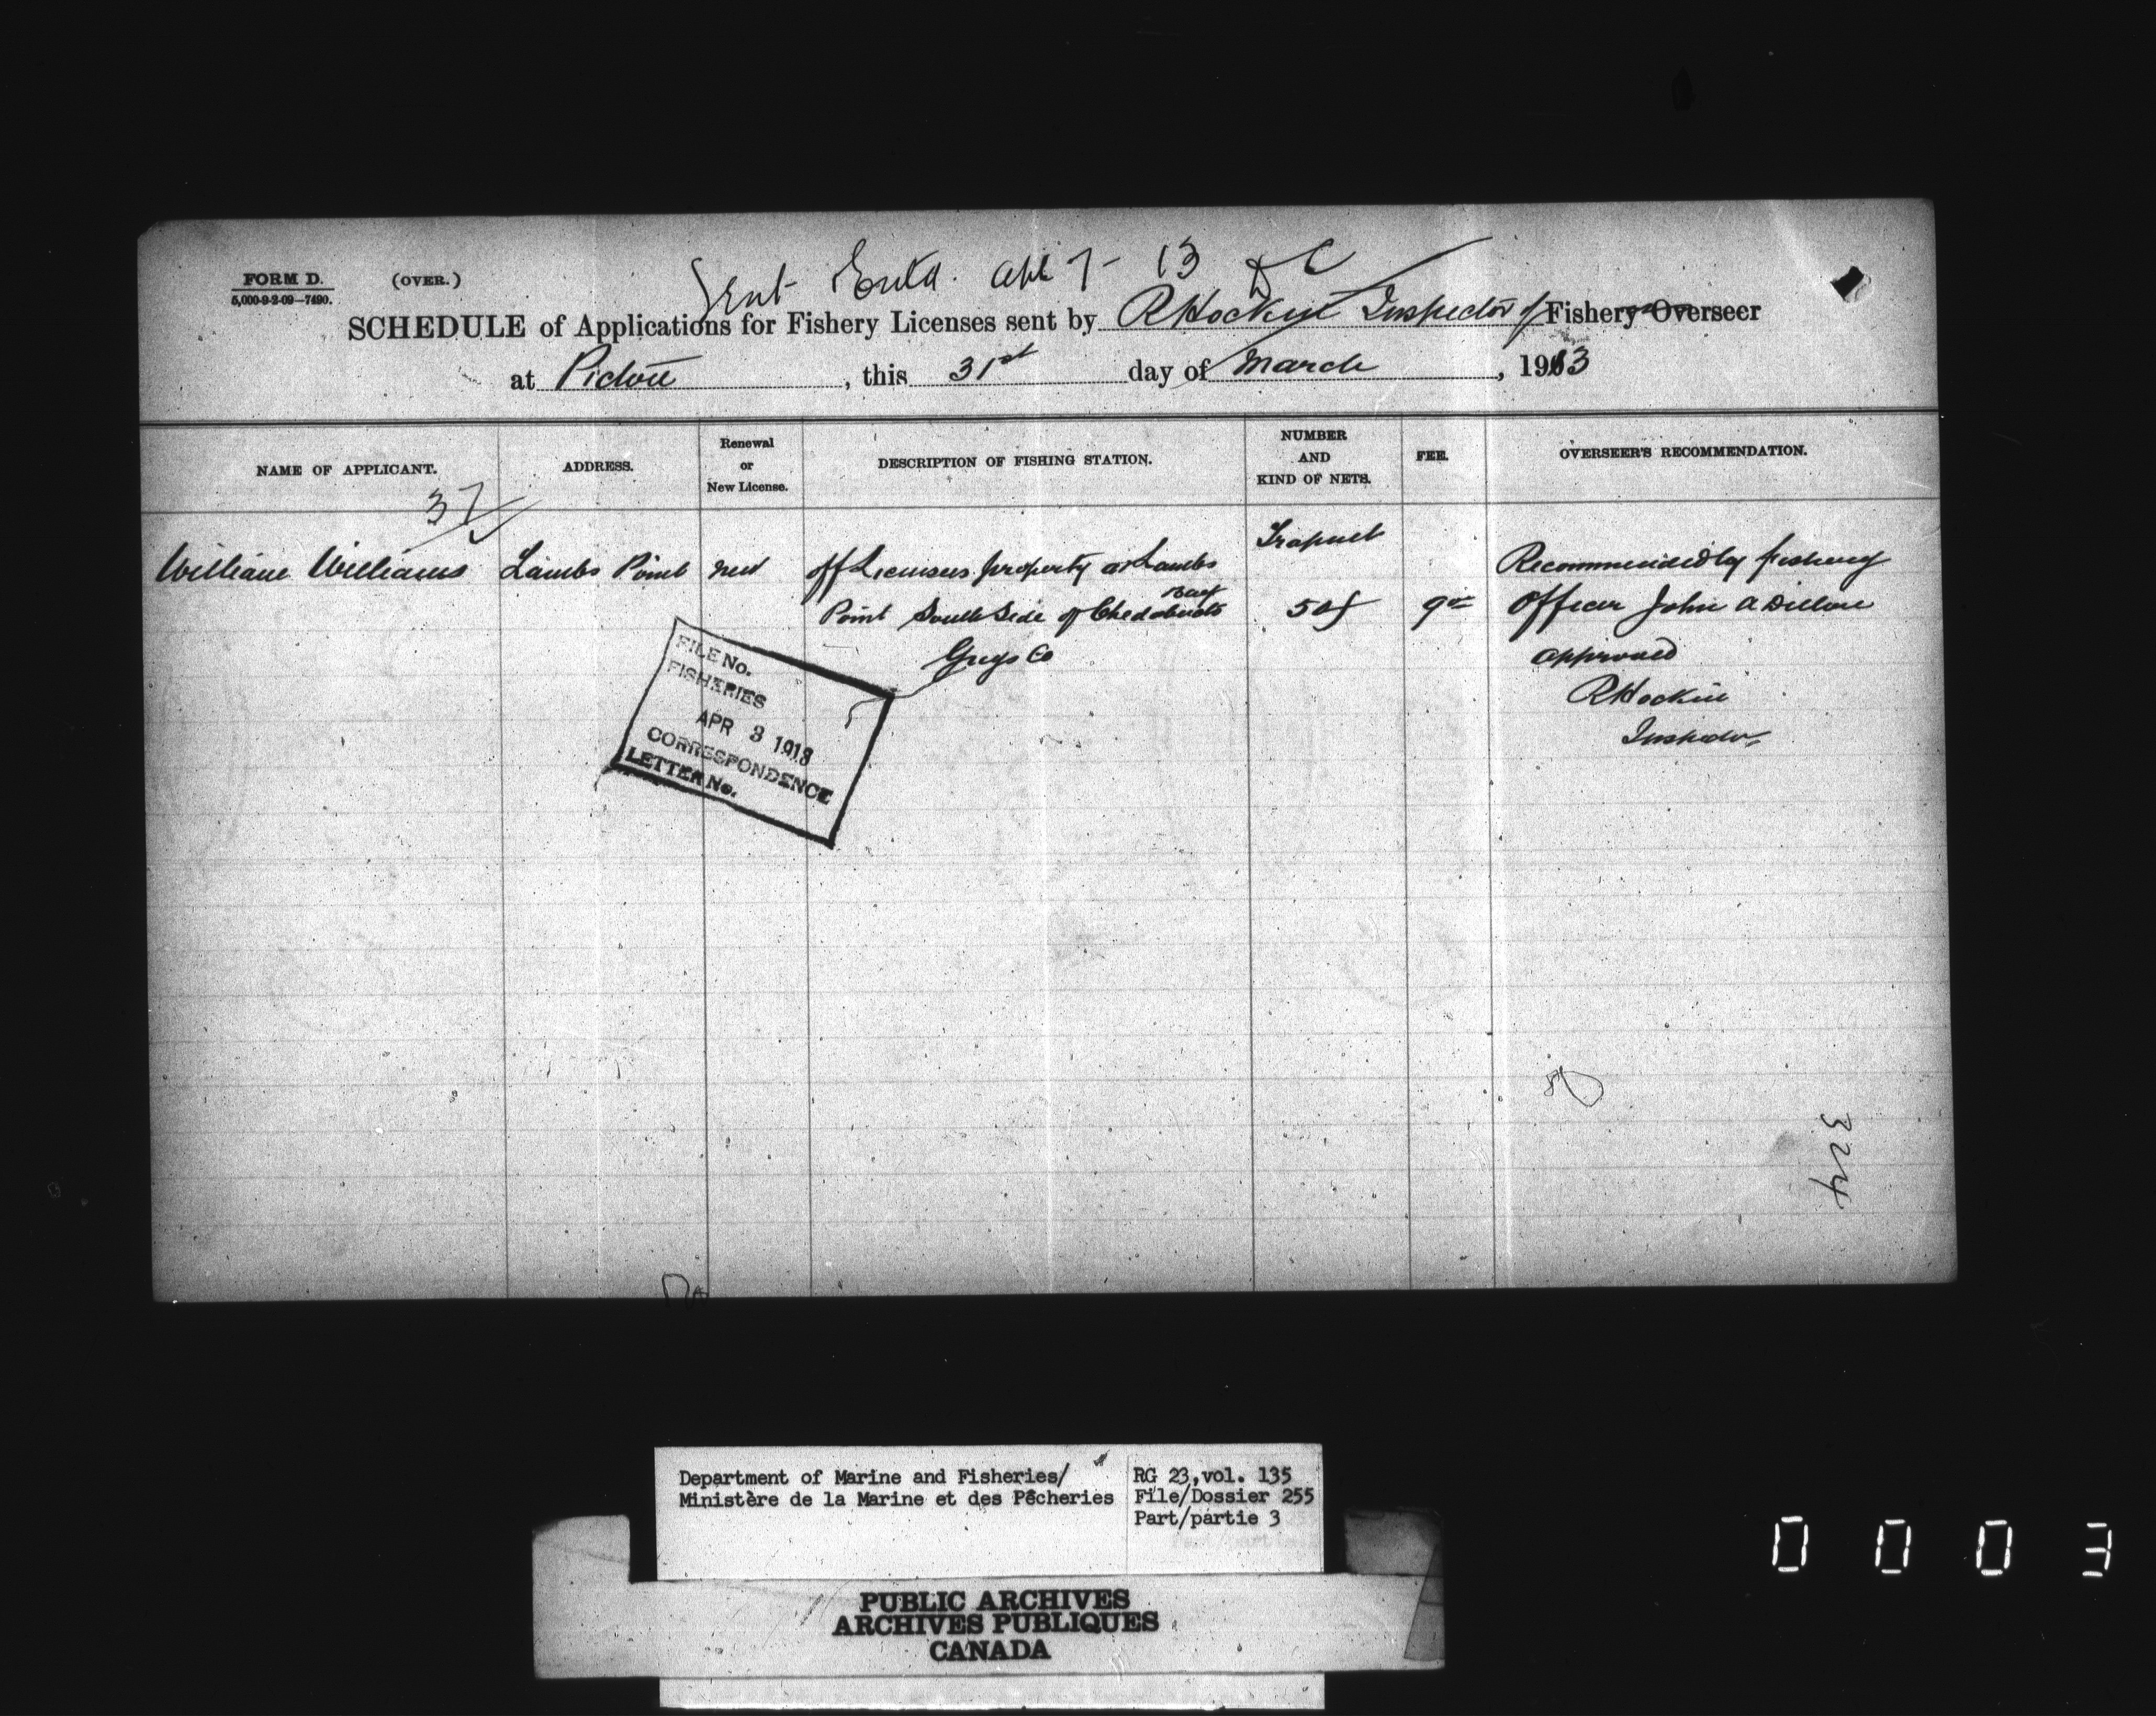 FORM D.
5,000-9-2-09—7490.
(OVER.)
Sent Ent'd. Apl 7 - 13
SCHEDULE of Applications for Fishery Licenses sent by R Hockin Inspector of Fishery Overseer
at Pictou, this 31st day of March, 1913
NAME OF APPLICANT.
ADDRESS.
Renewal
or
New License.
DESCRIPTION OF FISHING STATION.
NUMBER
AND
KIND OF NETS.
FEE.
OVERSEER'S RECOMMENDATION.
37
William Williams
Lambs Point
new
off Licensees property at Lambs
Point South Side of Chedabucto Bay
Guys Co
Trapnet
50f
9 00
Recommended by fishery
Officer John A Dillon
approved
R Hockin
Inspector
FILE No.
FISHERIES
APR 3 1913
CORRESPONDENCE
LETTER No.
324
Department of Marine and Fisheries/
Ministère de la Marine et des Pêcheries
RG 23, vol. 135
File/Dossier 255
Part/partie 3
PUBLIC ARCHIVES
ARCHIVES PUBLIQUES
CANADA
0003